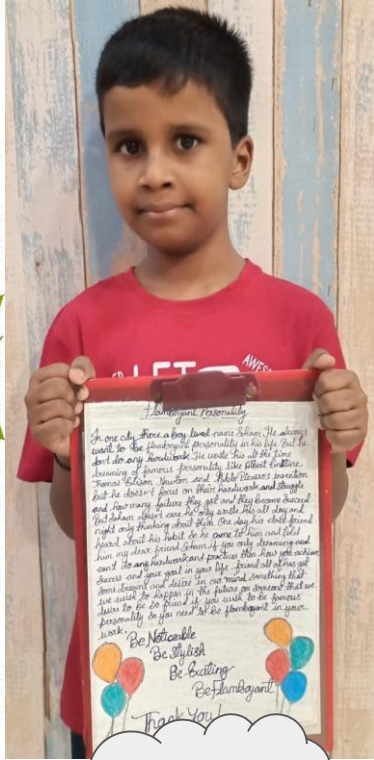 LET
AWES
Flamboyant Personality
In one city there a boy lived name Soham. He always
want to be flamboyant personality in his life. But he
don't do any hardwork. He waste his all the time
dreaming of famous personality like Albert Einstine,
Thomas Edison, Newton and Pablo Picasso's invention
but he doesn't focus on their hardwork and struggle
and how many failure they got and they become succeed.
But Soham doesn't care he only waste his all day and
night only thinking about them. One day his close friend
heard about his habit so he came to him and told
him my dear friend Soham if you only dreaming and
can't do any hardwork and practices then how you achieve
success and your goal in your life. friend all of has got
some dreams and desire in our mind something that
we wish to happen in the future or someone that we
desire to be So friend if you wish to be famous
personality So you need to be flamboyant in your
work.
Be Noticeable
Be Stylish
Be Exciting
Be Flamboyant
Thank You!